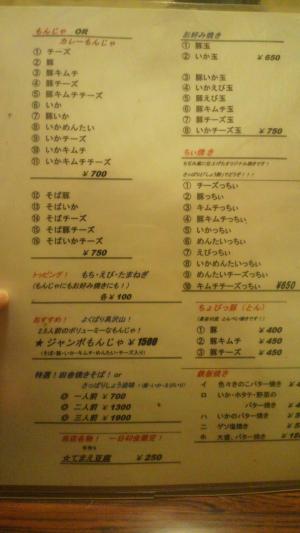 もんじゃ
カレーもんじゃ
① チーズ
② 豚
③ 豚キムチ
④ 豚チーズ
⑤ 豚キムチチーズ
⑥ いか
⑦ 豚いか
⑧ いかめんたい
⑨ いかチーズ
⑩ いかキムチ
⑪ いかキムチチーズ
￥700
⑫ そば豚
⑬ そばいか
⑭ そばチーズ
⑮ そば豚チーズ
⑯ そばいかチーズ
￥750
トッピング！ もち・えび・たまねぎ
（もんじゃにもお好み焼きにも！）
各￥100
おすすめ！ よくばり真沢山！
2.5人前のボリューミーなもんじゃ！
★ジャンボもんじゃ ￥1500
（そば・豚・いか・キムチ・めんたい・チーズ入り）
特選！田舎焼きそば！or
さっぱりしょう油味
◎ 一人前 ￥700
◎ 二人前 ￥1300
◎ 三人前 ￥1900
当店名物！ 一日40食限定！
☆てまえ豆腐 ￥250
お好み焼き
① 豚玉
② いか玉 ￥650
③ 豚いか玉
④ いかえび玉
⑤ 豚えび玉
⑥ 豚キムチ玉
⑦ 豚チーズ玉
⑧ いかチーズ玉 ￥750
ちぃ焼き
① チーズっちぃ
② 豚っちぃ
③ キムチっちぃ
④ 豚キムチっちぃ
⑤ いかっちぃ
⑥ めんたいっちぃ
⑦ えびっちぃ
⑧ いかめんたいっちぃ
⑨ めんたいチーズっちぃ
⑩ キムチチーズっちぃ ￥650
ちょびっ豚（とん）
① 豚 ￥400
② 豚キムチ ￥450
③ 豚チーズ ￥450
鉄板焼き
イ 色々きのこバター焼き
ロ いか・ホタテ・野菜の
バター焼き
ハ いかのバター焼き
ニ ゲソ塩焼き
ホ 大盛、バター焼き